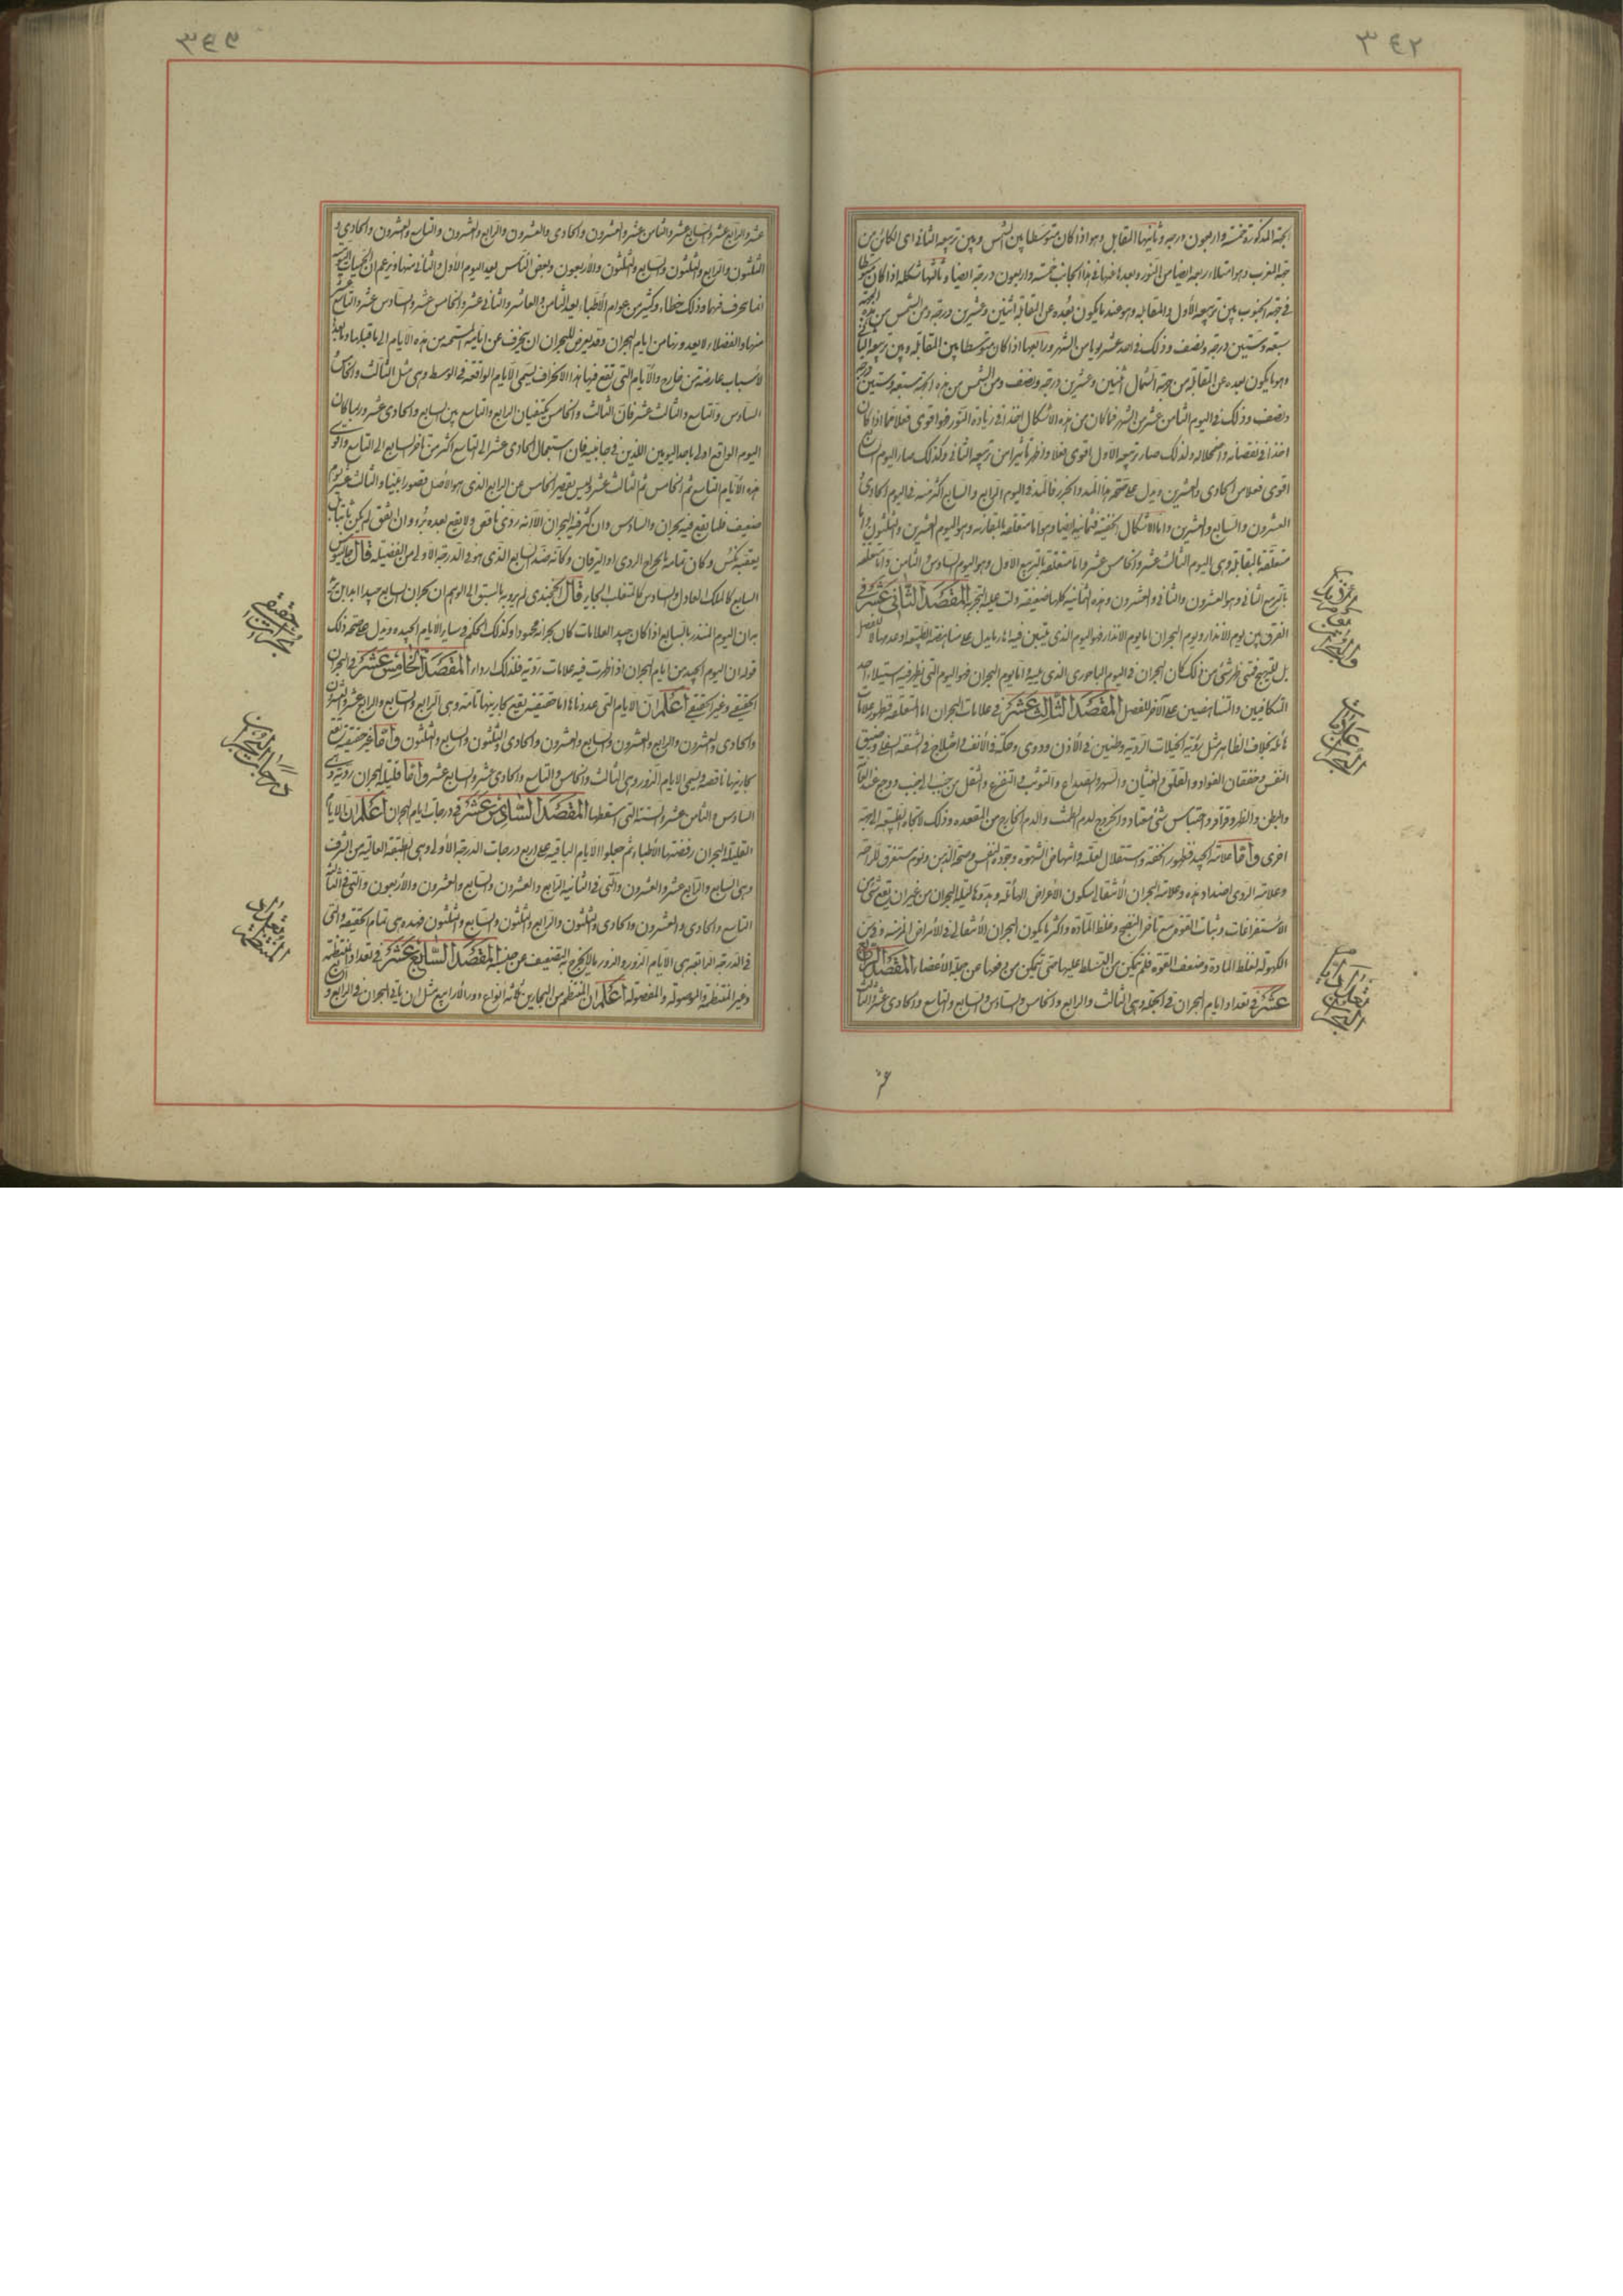 ٣٤٢
الجهة المذكورة خمسة واربعون درجه وثانيها التقابل وهو اذا كان متوسطا بين الشمس وبين تربيعه الثانى اى الكائن من
جهة المغرب وهو امتلاء ربعه ايضا من النور وبعده عنها فى هذا الجانب خمسة واربعون درجة ايضا وثالثها شكله اذا كان متوسطا
فى جهة الجنوب بين تربيعه الأول والمقابله وهو عندما يكون بعده عن المقابلة اثنين وعشرين درجة ومن الشمس من هذه الجهة
سبعة وستين درجة ونصف وذلك فى احد عشر يوما من الشهر ورابعها اذا كان متوسطا بين المقابله وبين تربيعه الثانى
وهو ما يكون بعده عن المقابلة من جهة الشمال اثنين وعشرين درجة ونصف ومن الشمس من هذه الجهة سبعة وستين درجة
ونصف وذلك فى اليوم الثامن عشر من الشهر فما كان من هذه الاشكال اخذا فى زيادة النور فهو اقوى فعلا مما اذا كان
اخذا فى نقصانه واضمحلاله ولذلك صار تربيعه الاول اقوى فعلا واظهر تأثيرا من تربيعه الثانى وكذلك صار اليوم السابع
اقوى فعلا من الحادى والعشرين ويدل على صحة هذا المد والجزر فالمد فى اليوم الرابع والسابع اكثر منه فى اليوم الحادى و
العشرون والسابع والعشرين واما الاشكال الخفية فثمانية ايضا وهو اما متعلقة بالمقارنه وهو اليوم العشرين والثلثون واما
متعلقة بالمقابلة وهى اليوم الثالث عشر والخامس عشر واما متعلقة بالتربيع الاول وهو اليوم السادس والثامن واما متعلقه
بالتربيع الثانى وهو العشرون والثانى والعشرون وهذه الثمانية كلها ضعيفة دلت عليه التجربة المقصد الثانى عشر فى
الفرق بين يوم الانذار ويوم البحران اما يوم الانذار فهو اليوم الذى يتبين فيه اثار ما يدل على مناهضة الطبيعه وعدوها لا للفصل
بل للتهييج فمتى ظهر شئ من ذلك كان البحران فى اليوم الباحورى الذى يليه واما يوم البحران فهو اليوم التى يظهر فيه استيلاء احد
المتكافيين والمتناهضين على الآخر للفصل المقصد الثالث عشر فى علامات البحران اما المتعلقه فظهور علامات
هائله بخلاف الظاهر مثل رؤية الخيلات الرديه وطنين فى الأذن ودوى وحكة فى الأنف واختلاج فى الشفة السفلى وضيق
النفس وخفقان الفواد والقلق والغثيان والسهر والصداع والتوثب والتفزع والثقل من جنب الى جنب ووجع غد
والبطن والظهر وقراقر واحتباس شئ معتاد والخروج لدم الطمث والدم الخارج من المقعده وذلك لاتجاه الطبيعه الى جهة
اخرى واما علامة الجيد فظهور الخفه واستقلال العلة وانتهاض الشهوه وجودة النفس وصحة الذهن ونوم مستغرق للراحة
وعلامة الردى اضداد هذه وعلامة البحران الأنتقالى سكون الأعراض الهائلة وحدتها ليله البحران من غير ان يتبع شئ من
الأستفراغات وثبات القوة مع تأخر النضج وغلظ المادة واكثر ما يكون البحران الأنتقالى فى الأمراض المزمنه وفى سن
الكهوله لغلظ المادة وضعف القوه فلم تتمكن من التسلط عليها حتى تتمكن من دفعها عن جملة الأعضاء المقصد الرابع
عشر فى تعداد ايام البحران فى الجملة وهى الثالث والرابع والخامس والسادس والسابع والتاسع والحادى عشر والثالث
عشر

عشر والرابع عشر والسابع عشر والثامن عشر والعشرون والحادى والعشرون والرابع والعشرون والتاسع والعشرون والحادى و
الثلثون والرابع والثلثون والسابع والثلثون والأربعون وبعض الناس يعد اليوم الأول والثانى منها ويزعم ان الحميات اليومية
انما يحرف فيهما وذلك خطاء وكثير من عوام الأطباء يعد الثامن والعاشر والثانى عشر والخامس عشر والسادس عشر والتاسع عشر
منها والفضلاء لا يعدونها من ايام البحران وقد يعرض للبحران ان ينحرف عن ايامه المستحقه من هذه الأيام الى ما قبلها وما بعدها
لأسباب عارضة من خارج والأيام التى تقع فيها هذا الانحراف يسمى الايام الواقعه فى الوسط وهى مثل الثالث والخامس
السادس والتاسع والثالث عشر فان الثالث والخامس يكتنفان الرابع والتاسع بين السابع والحادى عشر وربما كان
اليوم الواقع اولى باحد اليومين اللذين فى جانبيه فان استعمال الحادى عشر الى التاسع اكثر من تأخر السابع الى التاسع واقوى
هذه الأيام التاسع ثم الخامس ثم الثالث عشر وليس يقصر الخامس عن الرابع الذى هو الأصل قصورا بينا والثالث عشر يوم
ضعيف قلما يقع فيه بحران والسادس وان كثر فيه البحران الا انه ردى ناقص ولا يقع بعده برء وان اتفق لم يكن تاما بل
يعقبه نكس وكان تمامه بالخراج الردى او اليرقان وكأنه ضد السابع الذى هو فى الدرجة الأولى من الفضيله قال جالينوس
السابع كالملك العادل والسادس كالمتغلب الجاير قال الخجندى لم يرو به بالسبق الى الوهم ان بحران السابع جيد ابدا بل يريد
به ان اليوم المنذر بالسابع اذا كان جيد العلامات كان بحرانه محمودا وكذلك الحكم فى ساير الأيام الجيده ويدل على صحة ذلك
قوله ان اليوم الجيد من ايام البحران اذا ظهرت فيه علامات ردية فلذلك ارداء المقصد الخامس عشر فى البحران
الحقيقى وغير الحقيقى اعلم ان الايام التى عددناها اما حقيقية يقع بحارينها تامة وهى الرابع والسابع والرابع عشر والعشرون
والحادى والعشرون والرابع والعشرون والسابع والعشرون والحادى والثلثون والسابع والثلثون واما غير حقيقية تقع
بحارينها ناقصه وتسمى الايام الزور وهى الثالث والخامس والتاسع والحادى عشر والسابع عشر واما قليلة البحران رديته وهى
السادس والثامن عشر والستة التى اسقطها المقصد السادس عشر فى درجات ايام البحران اعلم ان الايام
القليلة البحران رفضتها الأطباء ثم جعلوا الايام الباقيه على اربع درجات الدرجة الأولى وهى الطبقة العاليه من الشرف
وهى السابع والرابع عشر والعشرون والتى فى الثانية الرابع والعشرون والسابع والعشرون والأربعون والتى فى الثالثة
التاسع والحادى والعشرون والحادى والثلثون والرابع والثلثون والسابع والثلثون فهذه هى تمام الحقيقه والتى
فى الدرجة الرابعة هى الأيام الزوره والزور ما لا يخرج به التضعيف عن جنبه المقصد السابع عشر فى تعداد المنتظمة
وغير المنتظمة والموصولة والمفصولة اعلم ان المنتظم من البحارين ثلثه انواع دور الأرابيع مثل ان ياتى البحران فى الرابع و السابع